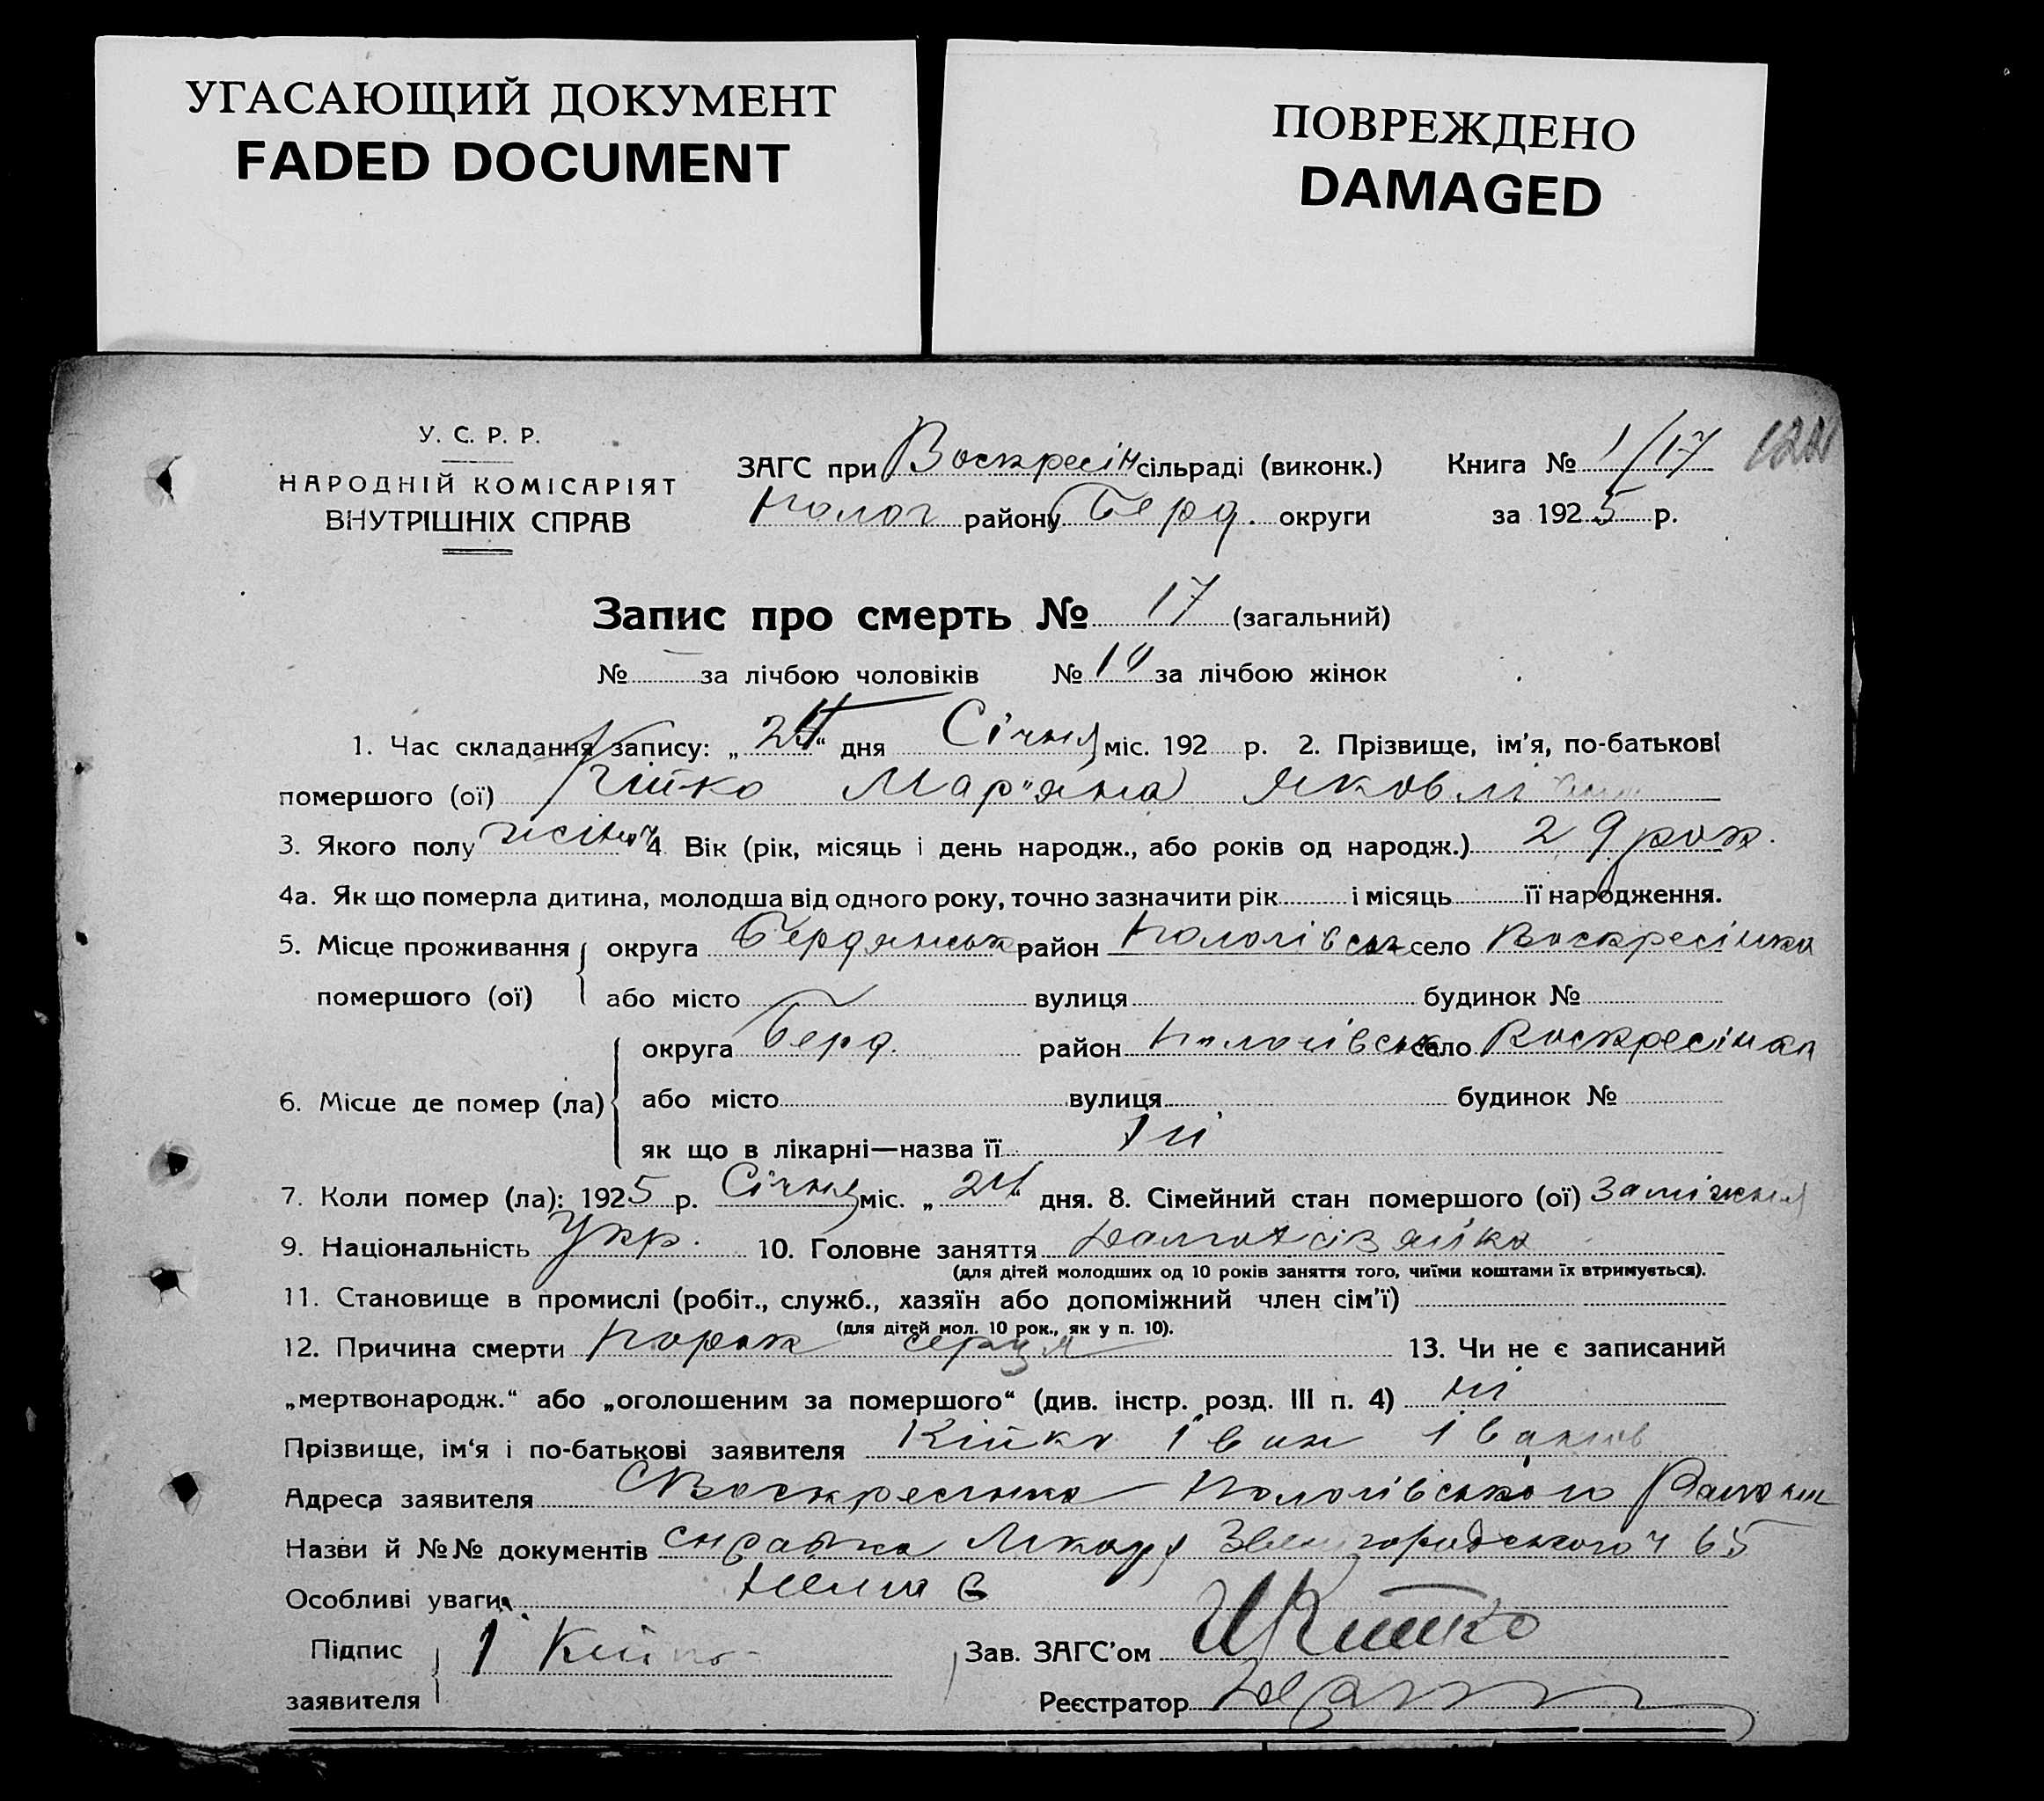 УГАСАЮЩИЙ ДОКУМЕНТ
FADED DOCUMENT
ПОВРЕЖДЕНО
DAMAGED
У. С. Р. Р.
НАРОДНІЙ КОМІСАРІЯТ
ВНУТРІШНІХ СПРАВ
ЗАГС при Воскресін сільраді (виконк.)
Полог району Берд. округи
Книга № 1/17
за 1925 р.
Запис про смерть № 17 (загальний)
№ — за лічбою чоловіків № 10 за лічбою жінок
1. Час складання запису: „24“ дня Січня міс. 192 р. 2. Прізвище, ім'я, по-батькові
помершого (ої) Кійко Мар"яна Яковлі
3. Якого полу жіноч 4 Вік (рік, місяць і день народж., або років од народж.) 29 рок.
4а. Як що померла дитина, молодша від одного року, точно зазначити рік і місяць її народження.
5. Місце проживання округа Бердянська район Пологівськ село Воскресінка
помершого (ої) або місто вулиця будинок №
округа Берд. район Пологівськ село Воскресінка
6. Місце де помер (ла) або місто вулиця будинок №
як що в лікарні—назва її ні
7. Коли помер (ла): 1925 р. Січня міс. „24“ дня. 8. Сімейний стан помершого (ої) Заміжня
9. Національність Укр. 10. Головне заняття Домохазяйка
(для дітей молодших од 10 років заняття того, чиїми коштами їх втримується).
11. Становище в промислі (робіт., служб., хазяїн або допоміжний член сім'ї)
(для дітей мол. 10 рок., як у п. 10).
12. Причина смерти Порок серця 13. Чи не є записаний
„мертвонародж.“ або „оголошеним за помершого“ (див. інстр. розд. III п. 4) ні
Прізвище, ім'я і по-батькові заявителя Кійко Іван Іванов
Адреса заявителя с Воскресінка Пологівського Району
Назви й №№ документів справка Лікаря Звенигородського ч 65
Особливі уваги Нема Є
Підпис
заявителя І Кійко
Зав. ЗАГС'ом И Кийко
Реєстратор